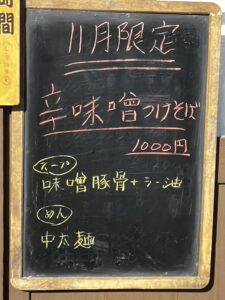 間
11月限定
辛味噌つけそば
1000円
スープ
味噌豚骨+ラー油
めん
中太麺